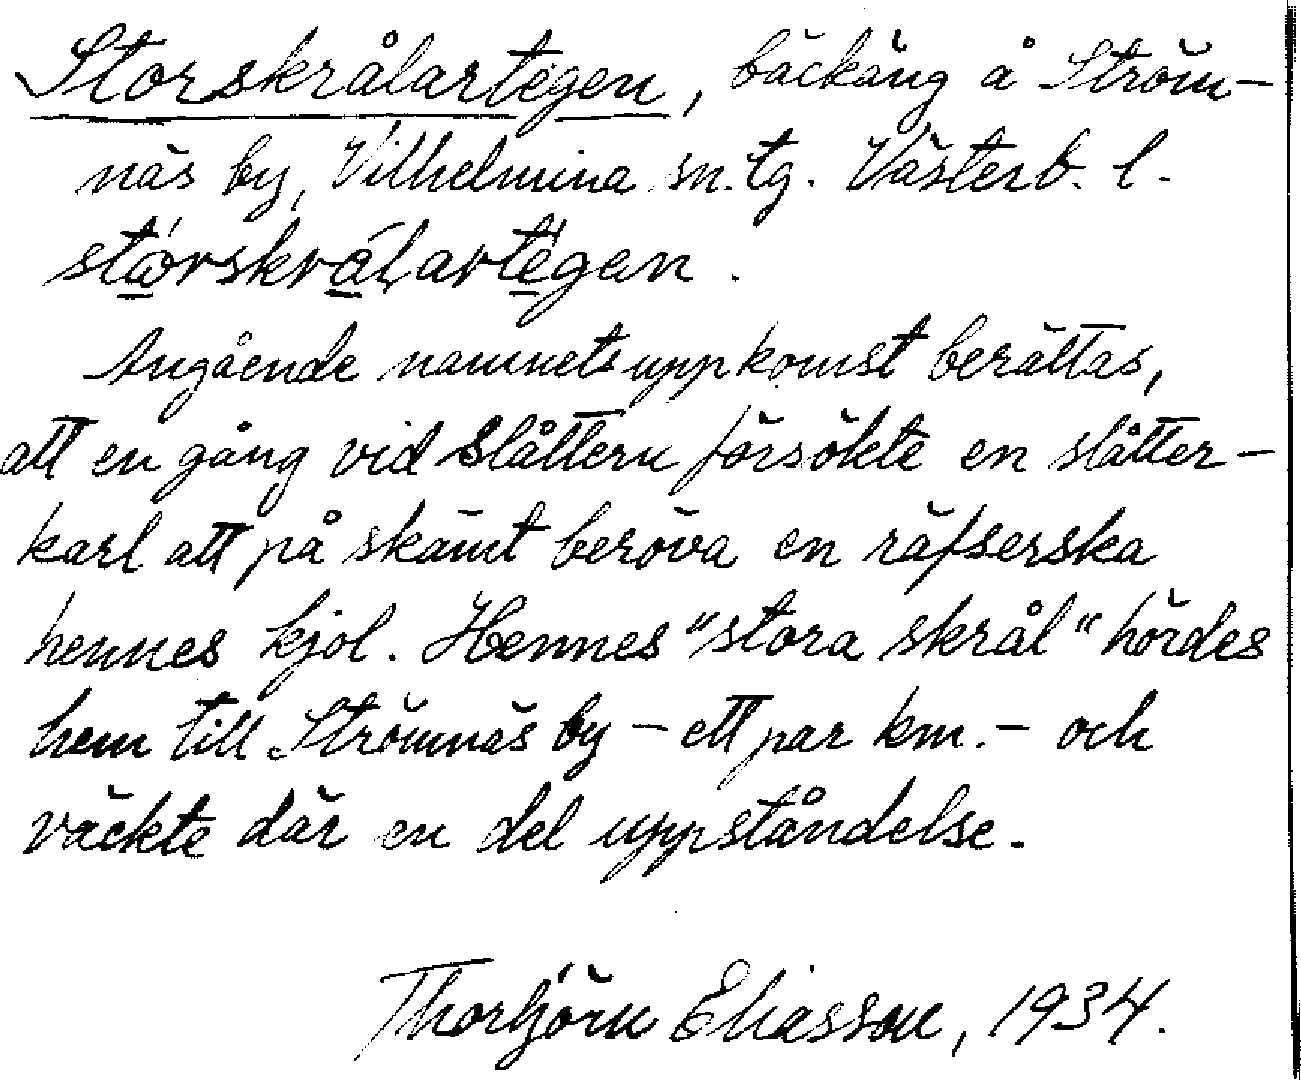 Storskrålartegen, bäckäng å Ström-
näs by, Vilhelmina sn. tg. Västerb. l.
stórskrålartegen.
Angående namnets uppkomst berättas,
att en gång vid slåttern försökte en slåtter-
karl att på skämt beröva en räfserska
hennes kjol. Hennes "stora skrål" hördes
hem till Strömnäs by - ett par km. - och
väckte där en del uppståndelse.
Thorbjörn Eliasson, 1934.